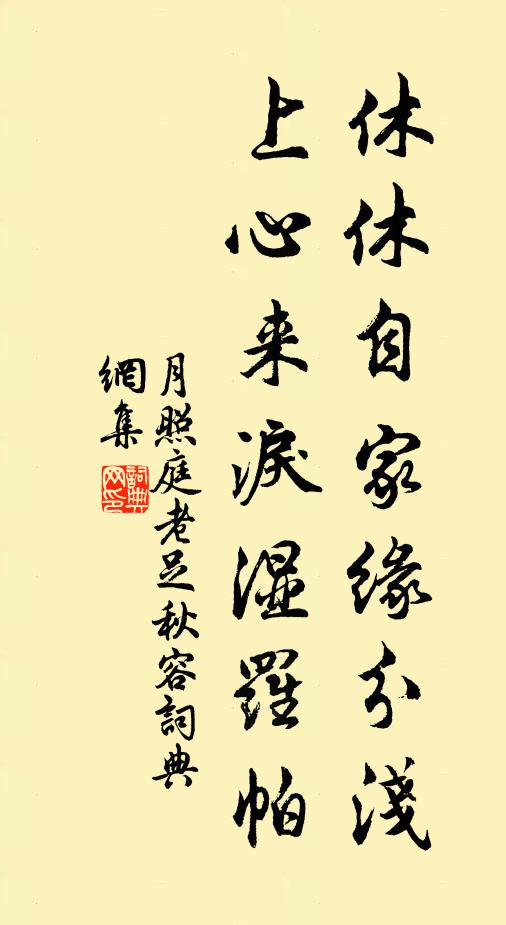 休休自家緣分淺
上心来淚湿羅帕
月照庭老足秋容詞典
網集
詞典网印